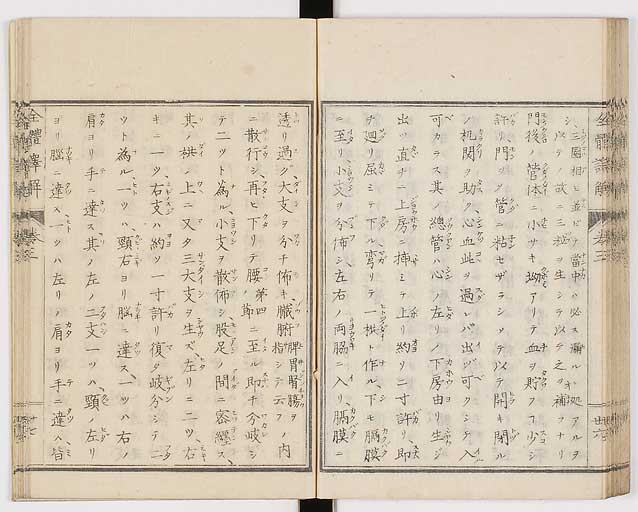 シ、三圏相ヒ並ビテ當中ハ必ス漏ルヽ処アルヲ
以テ故ニ三粒ヲ生シテ以テ之ヲ補フナリ
門後ノ管体ニ小サキ拗アリテ血ヲ貯フコ少シ
許リ、門ヲ管ニ粘セザラシメテ以テ開キ閉ル
ノ机関ヲ助ク心血此ヲ過レバ出ツ可クシテ入ル
可カラス其ノ總管ハ心ノ左リノ下房由リ生ジ
出ツ直チニ上房ニ挿ミテ上リ約リ二寸許リ、即
チ廻リ屈ミテ下ル、弯リテ一拱ト作ル、下モ膈膜
ニ至リ小支ヲ分佈シ、左右ノ両脇ニ入リ、膈膜ニ
透リ過グ大支ヲ分チ佈キ、臓腑脾胃腎腸ヲ指シテ云フノ内
ニ散行シ、再ヒ下リテ腰ノ第四節ニ至ル即チ分岐シ
テ二ツト為ル、小支ヲ散佈シ股足ノ間ニ
其ノ拱ノ上ニ又タ三大支ヲ生ズ左リニ二ツ、右
キニ一ツ、右支ハ約ソ一寸許リ復タ岐分シテ二
ツト為ル、一ツハ頸右ヨリ脳ニ達ス、一ツハ右ノ
肩ヨリ手ニ達ス、其ノ左ノ二支一ツハ、頸ノ左リ
ヨリ脳ニ達ス、一ツハ左リノ肩ヨリ手ニ達ハ、皆
全體譯解
巻三